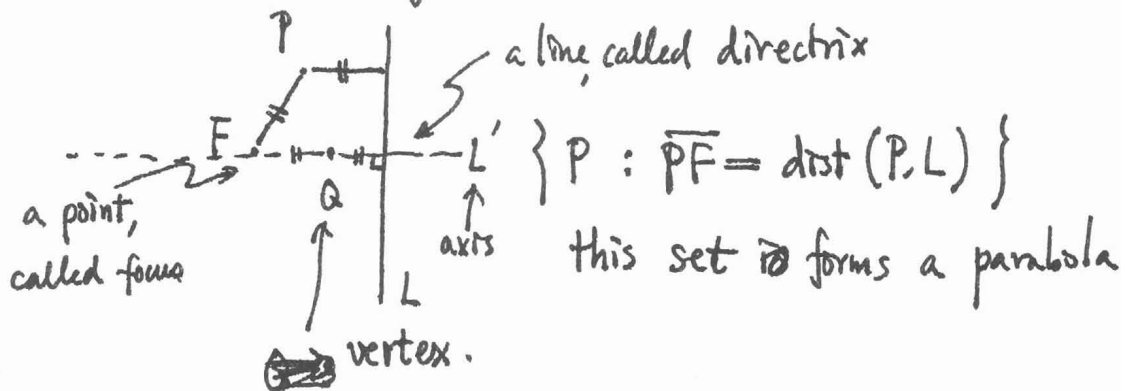 P
a line, called directrix
F
L' { P : \overline{PF} = dist (P, L) }
a point,
called focus
Q
axis
this set forms a parabola
L
vertex.